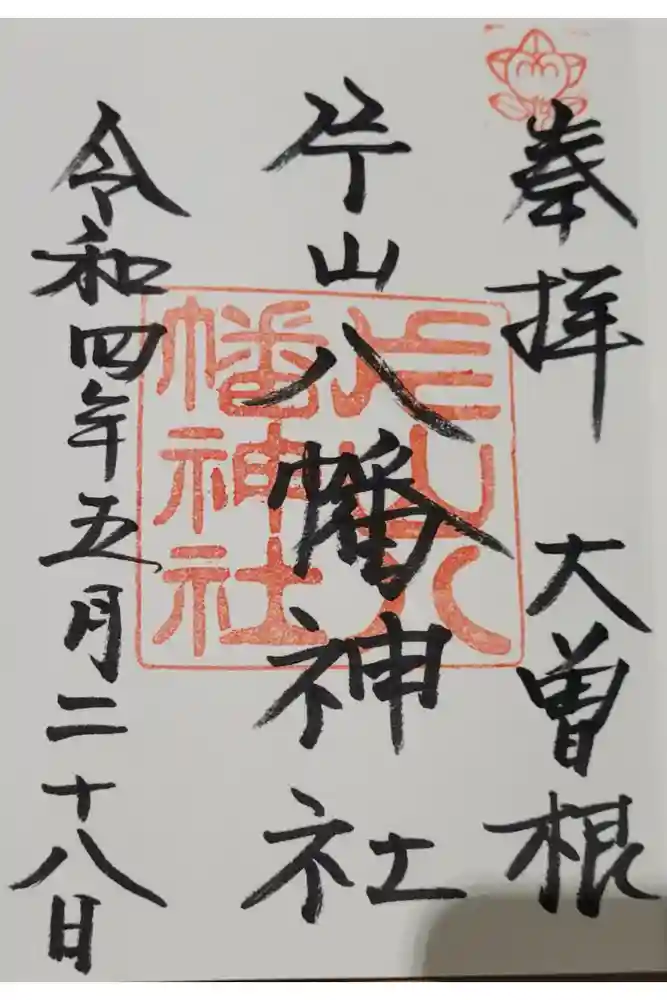 奉拝 大曽根
片山八幡神社
片山八幡神社
令和四年五月二十八日